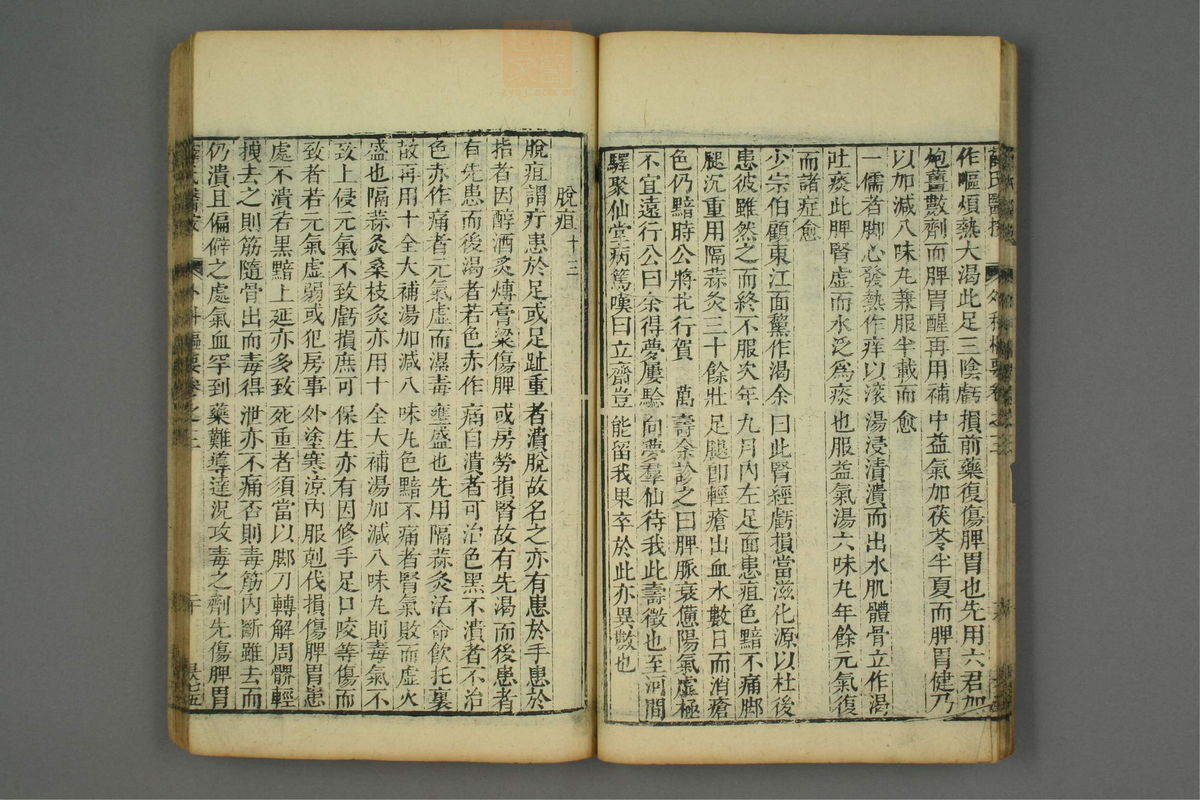 薛氏醫按 外科樞要卷之三
作嘔煩熱大渴此足三陰虧損前藥復傷脾胃也先用六君加
炮薑數劑而脾胃醒再用補中益氣加茯苓半夏而脾胃健乃
以加減八味丸兼服半載而愈
一儒者脚心發熱作痒以滚湯浸漬潰而出水肌體骨立作渴
吐痰此脾腎虛而水泛爲痰也服益氣湯六味丸年餘元氣復
而諸症愈
少宗伯顧東江面黧作渴余曰此腎經虧損當滋化源以杜後
患彼雖然之而終不服次年九月內左足面患疽色黯不痛脚
腿沉重用隔蒜灸三十餘壯足腿即輕瘡出血水數日而消瘡
色仍黯時公將北行賀 萬壽余診之曰脾脈衰憊陽氣虛極
不宜遠行公曰余得夢屢驗向夢羣仙待我此壽徵也至河間
驛聚仙堂病篤嘆曰立齋豈能留我果卒於此亦異數也
脫疽十三
脫疽謂疔患於足或足趾重者潰脫故名之亦有患於手患於
指者因醇酒炙煿膏粱傷脾或房勞損腎故有先渴而後患者
有先患而後渴者若色赤作痛自潰者可治色黑不潰者不治
色赤作痛者元氣虛而濕毒壅盛也先用隔蒜灸活命飲托裏
散再用十全大補湯加減八味丸色黯不痛者腎氣敗而虛火
盛也隔蒜灸桑枝灸亦用十全大補湯加減八味丸則毒氣不
致上侵元氣不致虧損庶可保生亦有因修手足口咬等傷而
致者若元氣虛弱或犯房事外塗寒涼內服剋伐損傷脾胃患
處不潰若黑黯上延亦多致死重者須當以脚刀轉解周髎輕
拽去之則筋隨骨出而毒得泄亦不痛否則毒筋內斷雖去而
仍潰且偏僻之處氣血罕到藥難導達況攻毒之劑先傷脾胃
薛氏醫按 外科樞要卷之三